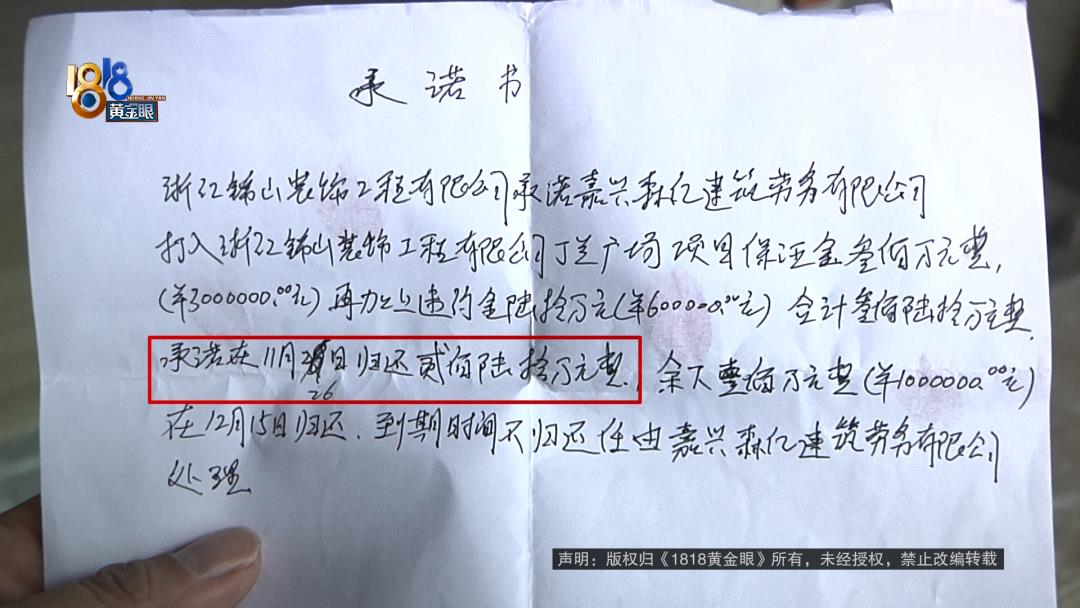 1818
HUANG JIN YAN
黄金眼
承诺书
浙江锦山装饰工程有限公司承诺嘉兴森亿建筑劳务有限公司
打入浙江锦山装饰工程有限公司丁兰广场项目保证金叁佰万元整,
(¥3000000.00元)再加上违约金陆拾万元(¥600000.00元)合计叁佰陆拾万元整.
承诺在11月日归还贰佰陆拾万元整,余下壹佰万元整(¥1000000.00元)
26
在12月15日归还.到期时间不归还任由嘉兴森亿建筑劳务有限公司
处理
声明：版权归《1818黄金眼》所有，未经授权，禁止改编转载